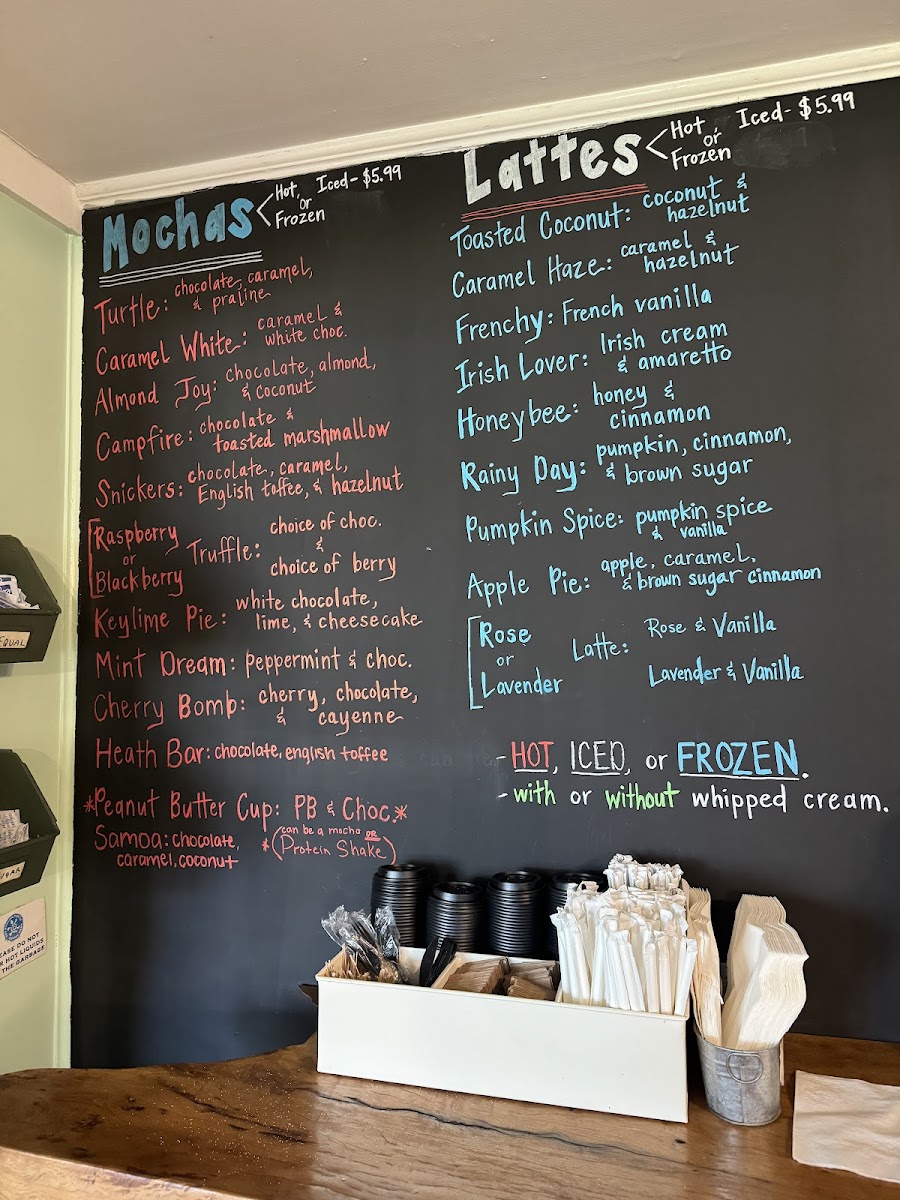 Mochas < Hot, or Frozen Iced - $5.99
Turtle: chocolate, caramel,
& praline
Caramel White: caramel &
white choc.
Almond Joy: chocolate, almond,
& coconut
Campfire: chocolate &
toasted marshmallow
Snickers: chocolate, caramel,
English toffee, & hazelnut
Raspberry
or
Blackberry
Truffle:
choice of choc.
&
choice of berry
Keylime Pie: white chocolate,
lime, & cheesecake
Mint Dream: peppermint & choc.
Cherry Bomb: cherry, chocolate,
& cayenne
Heath Bar: chocolate, english toffee
*Peanut Butter Cup: PB & Choc.*
*(can be a mocha OR
Protein Shake)
Samoa: chocolate,
caramel, coconut
Lattes < Hot, or Frozen Iced - $5.99
Toasted Coconut: coconut &
hazelnut
Caramel Haze: caramel &
hazelnut
Frenchy: French vanilla
Irish Lover: Irish cream
& amaretto
Honeybee: honey &
cinnamon
Rainy Day: pumpkin, cinnamon,
& brown sugar
Pumpkin Spice: pumpkin spice
& vanilla
Apple Pie: apple, caramel,
& brown sugar cinnamon
Rose
or
Lavender
Latte:
Rose & Vanilla
Lavender & Vanilla
- HOT, ICED, or FROZEN.
- with or without whipped cream.
EQUAL
DO NOT
HOT LIQUIDS
THE GARBAGE